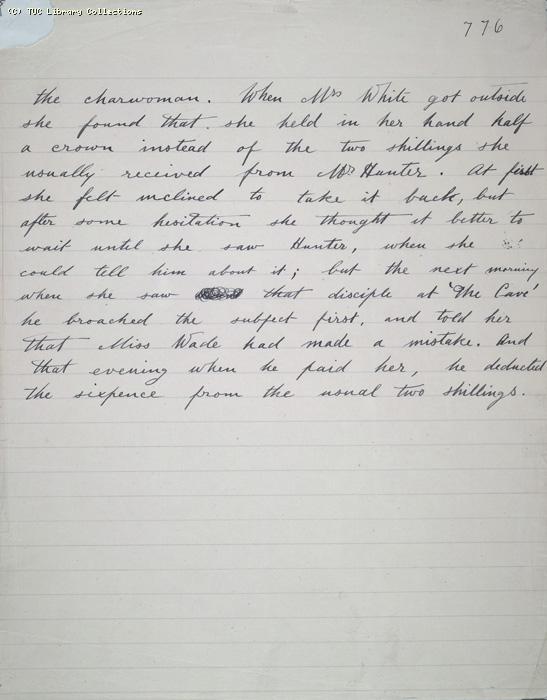 (C) TUC Library Collections
776
the charwoman. When Mrs White got outside
she found that she held in her hand half
a crown instead of the two shillings she
usually received from Mr Hunter. At first
she felt inclined to take it back, but
after some hesitation she thought it better to
wait until she saw Hunter, when she
could tell him about it; but the next morning
when she saw that disciple at 'The Cave'
he broached the subject first, and told her
that Miss Wade had made a mistake. And
that evening when he paid her, he deducted
the sixpence from the usual two shillings.